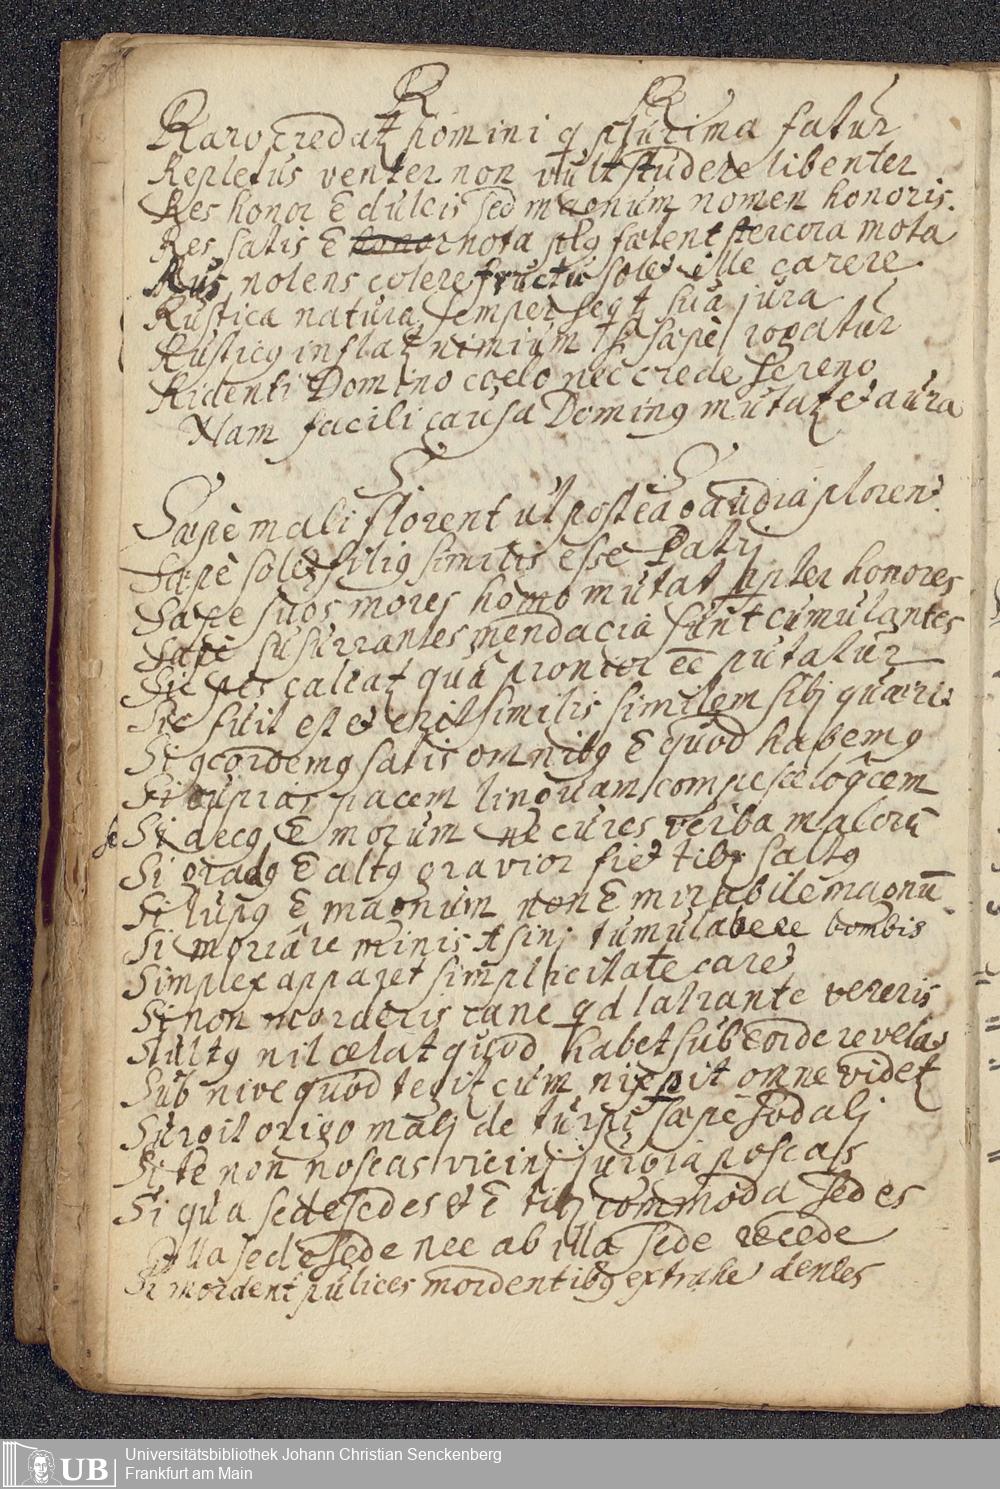 R R
Raro credatz homini q plurima fatur
Repletus venter non vult studere libenter
Res honor ē dulcis sed magnum nomen honoris.
Res satis ē nota plq fœtent stercora mota
Rus nolens colere fructu solet ille carere
Rustica natura semper seqtz sua jura
Rusticq inflatz nimium si sæpè rogatur
Ridenti Domino coelo nec crede sereno
Nam facili causa Dominq mutatz et aura
S S
Sæpè mali florent ut postea gaudia plorent
Sæpè solet filiq similis esse Patrj
Sæpe suos mores homo mutat ppter honores
Sæpè susurrantes mendacia sunt cumulantes
Sic pes calcatz qua pronior ēe putatur
Sic fuit est et erit similis similem sibj quærit
Si qcordemq satis omnibq ē quod habemq
Si cupias pacem linguam compesce loqcem
Si decq ē morum ne cures verba malorū
Si gradq ē altq gravior fiet tibi saltq
Si lupq ē magnum non ē mirabile magnū
Si moriare minis Asinj tumulabere bombis
Simplex apparet simplicitate caret
Si non morderis cane qd latrante vereris
Stultq nil cælat quod habet sub corde revelat
Sub nive quod tegit cum nix pit omne videt
Surgit origo malj de turpi sæpe sodalj
Si te non noscas vicinj jurgia poscas
Si qua sede sedes et ē tibj commoda sedes
Illa sede sede nec ab illa sede recede
Si mordent pulices mordentibq extrahe dentes
Universitätsbibliothek Johann Christian Senckenberg
Frankfurt am Main
UB